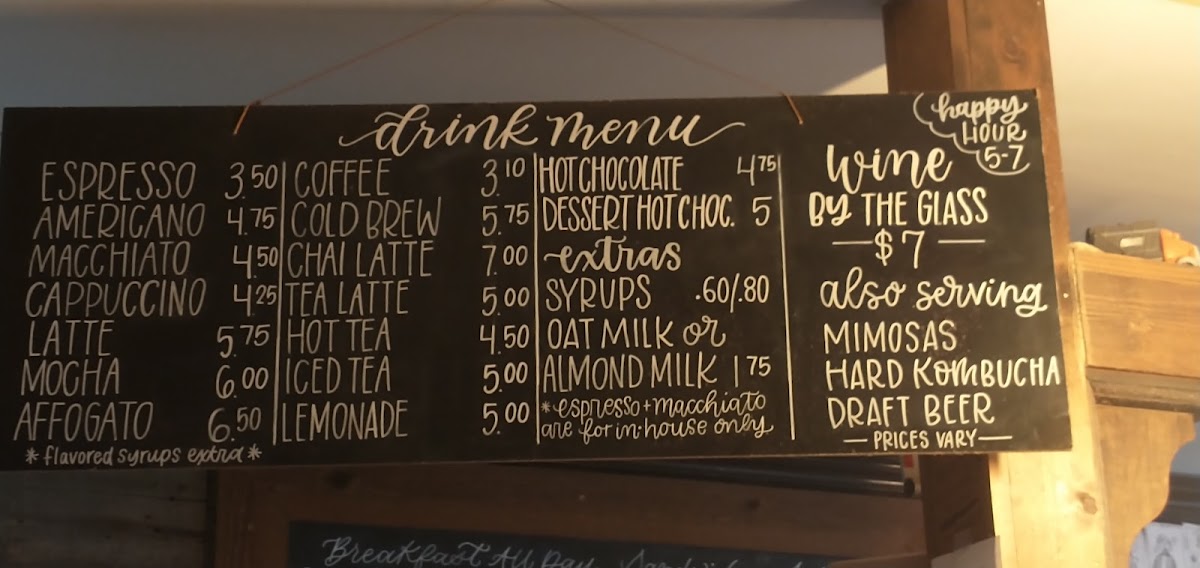 drink menu
ESPRESSO 3.50
AMERICANO 4.75
MACCHIATO 4.50
CAPPUCCINO 4.25
LATTE 5.75
MOCHA 6.00
AFFOGATO 6.50
*flavored syrups extra*
COFFEE 3.10
COLD BREW 5.75
CHAI LATTE 7.00
TEA LATTE 5.00
HOT TEA 4.50
ICED TEA 5.00
LEMONADE 5.00
HOT CHOCOLATE 4.75
DESSERT HOT CHOC. 5
extras
SYRUPS .60/.80
OAT MILK or
ALMOND MILK 1.75
*espresso + macchiato
are for in-house only
happy
HOUR
5-7
wine
BY THE GLASS
$7
also serving
MIMOSAS
HARD KOMBUCHA
DRAFT BEER
PRICES VARY
Breakfast All Day